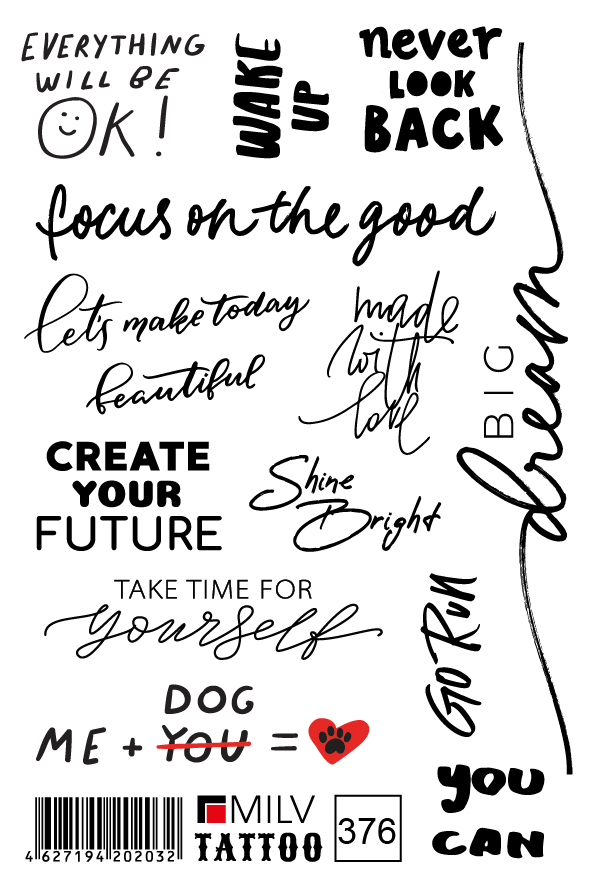 EVERYTHING
WILL BE
OK!
WAKE
UP
never
LOOK
BACK
focus on the good
let's make today
beautiful
made
with
love
BIG
dream
CREATE
YOUR
FUTURE
Shine
Bright
TAKE TIME FOR
yourself
GO RUN
DOG
ME + YOU =
YOU
CAN
4 627194 202032
MILV
TATTOO
376